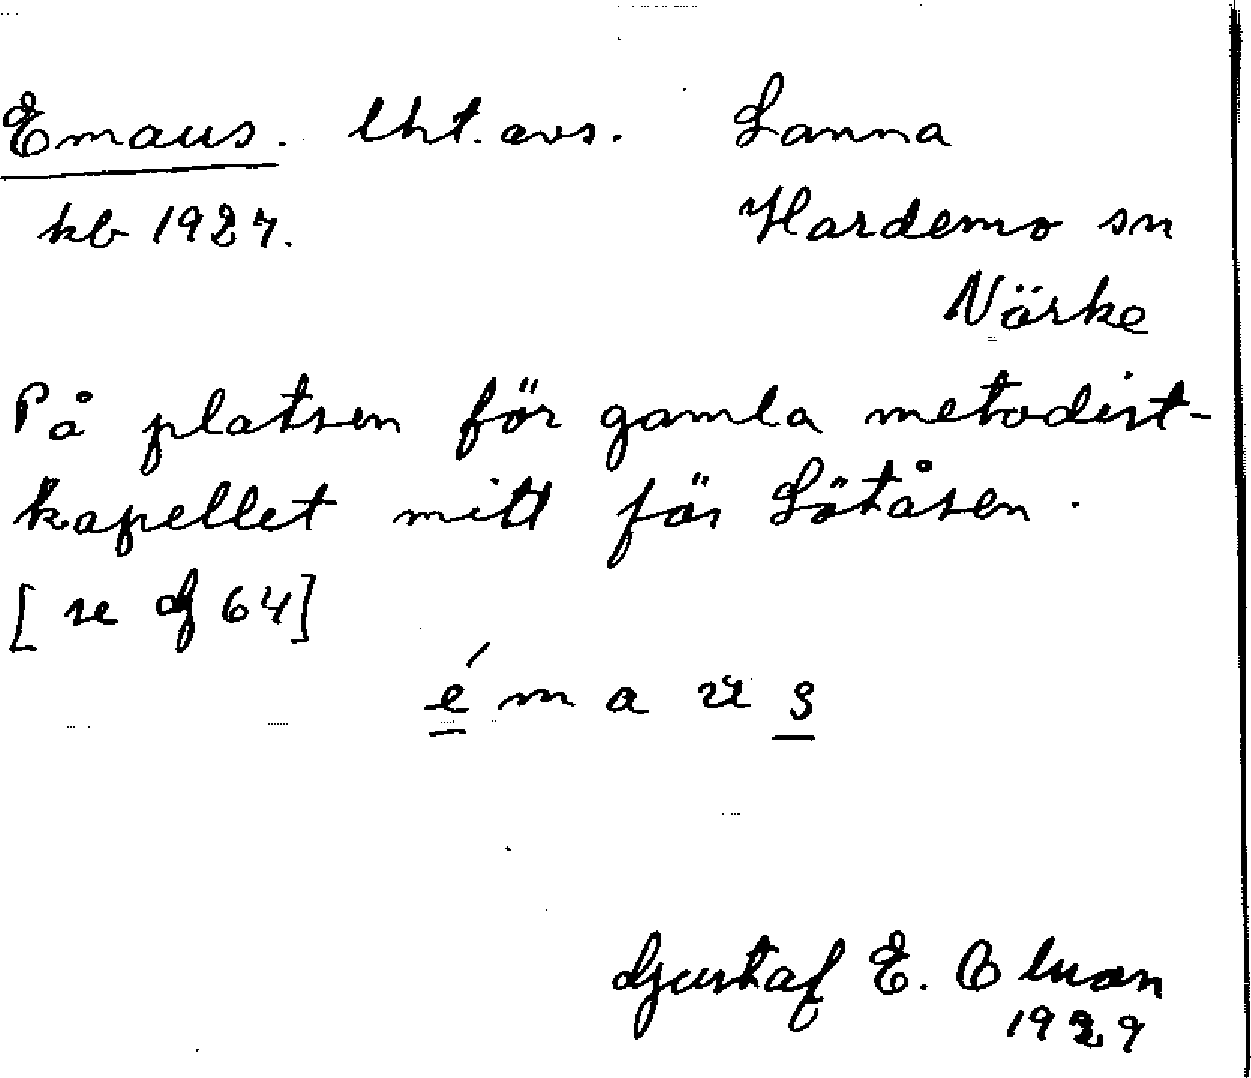 Emaus. lht. avs. Lanna
kb 1927. Hardemo sn
Närke
På platsen för gamla metodist-
kapellet mitt för Lötåsen.
[se df 64]
é m a u s
Gustaf E. Olsson
1929